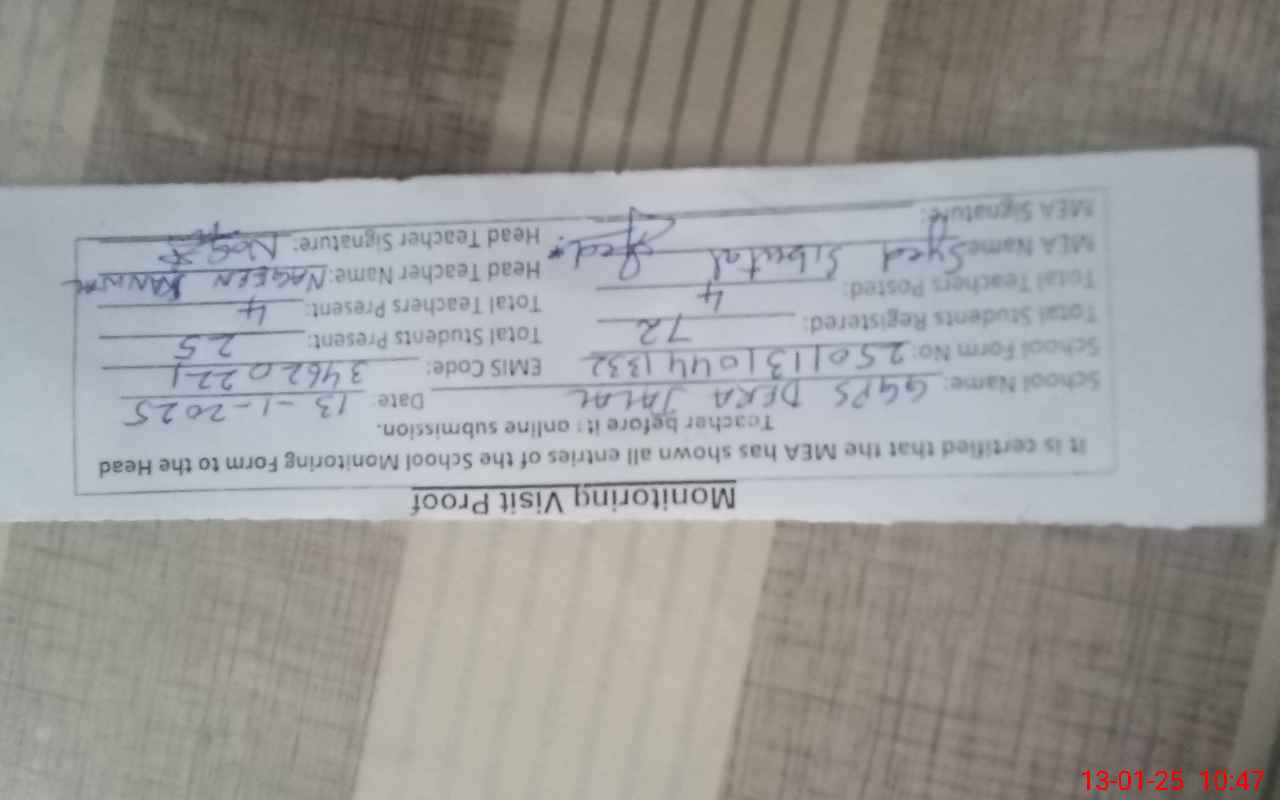 Monitoring Visit Proof
It is certified that the MEA has shown all entries of the School Monitoring Form to the Head
Teacher before it : online submission.
School Name: GGPS DERA JALAL Date: 13-1-2025
School Form No: 25011310441332 EMIS Code: 34620221
Total Students Registered: 72 Total Students Present: 25
Total Teachers Posted: 4 Total Teachers Present: 4
MEA Name: Syed Sibutal Head Teacher Name: NAGEEN KANWAL
MEA Signature: Head Teacher Signature:
13-01-25 10:47